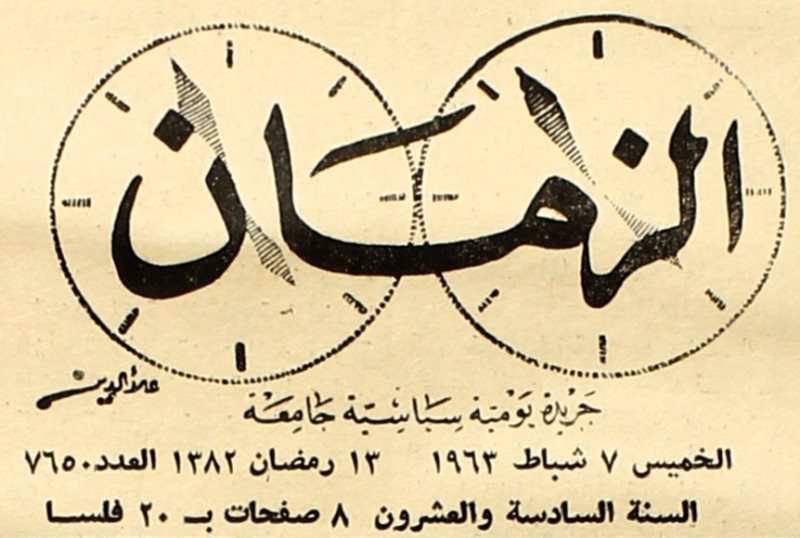 الزمان
علاء الدين
جريدة يومية سياسية جامعة
الخميس ٧ شباط ١٩٦٣ ١٣ رمضان ١٣٨٢ العدد ٧٦٥٠
السنة السادسة والعشرون ٨ صفحات بـ ٢٠ فلسا